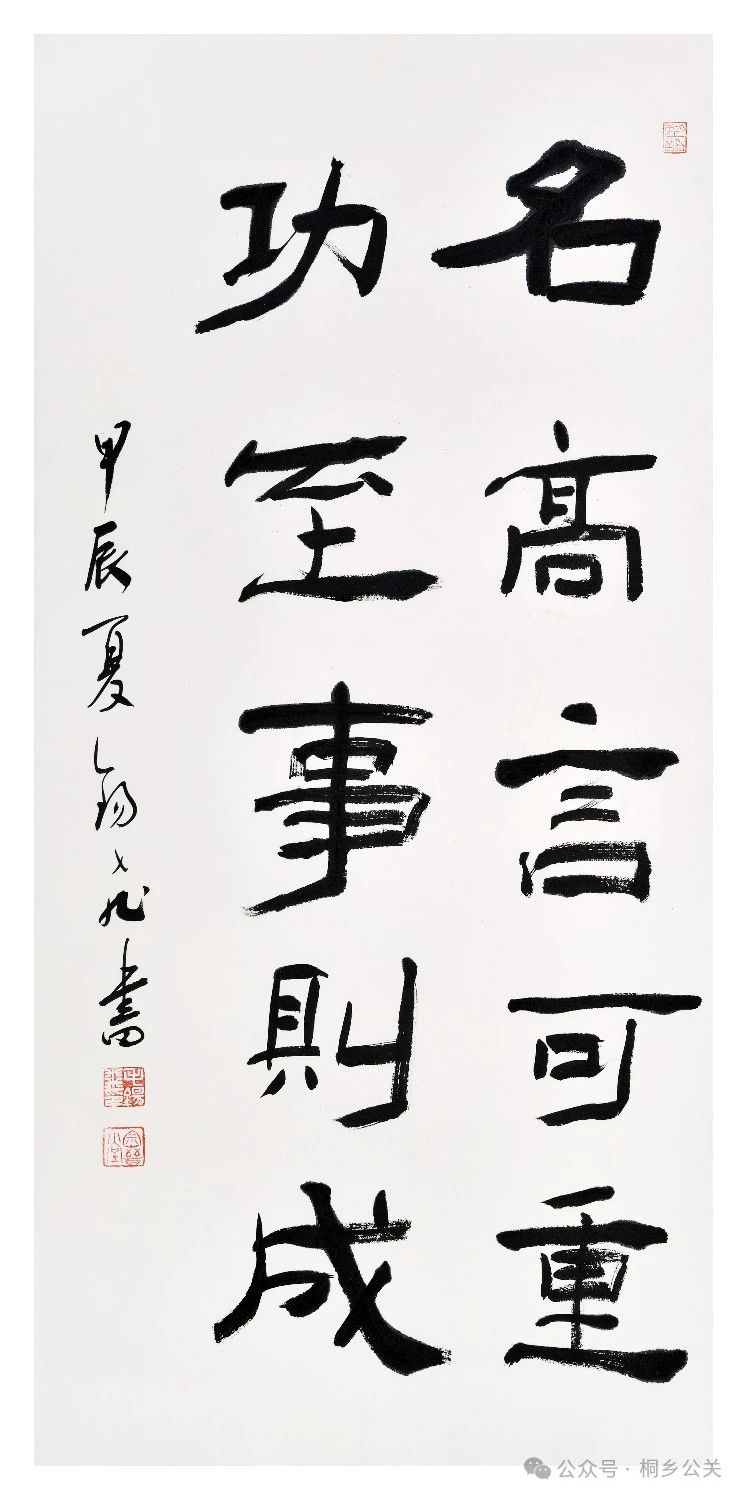 名高言可重
功至事則成
甲辰夏 錫 書
公众号·桐乡公关